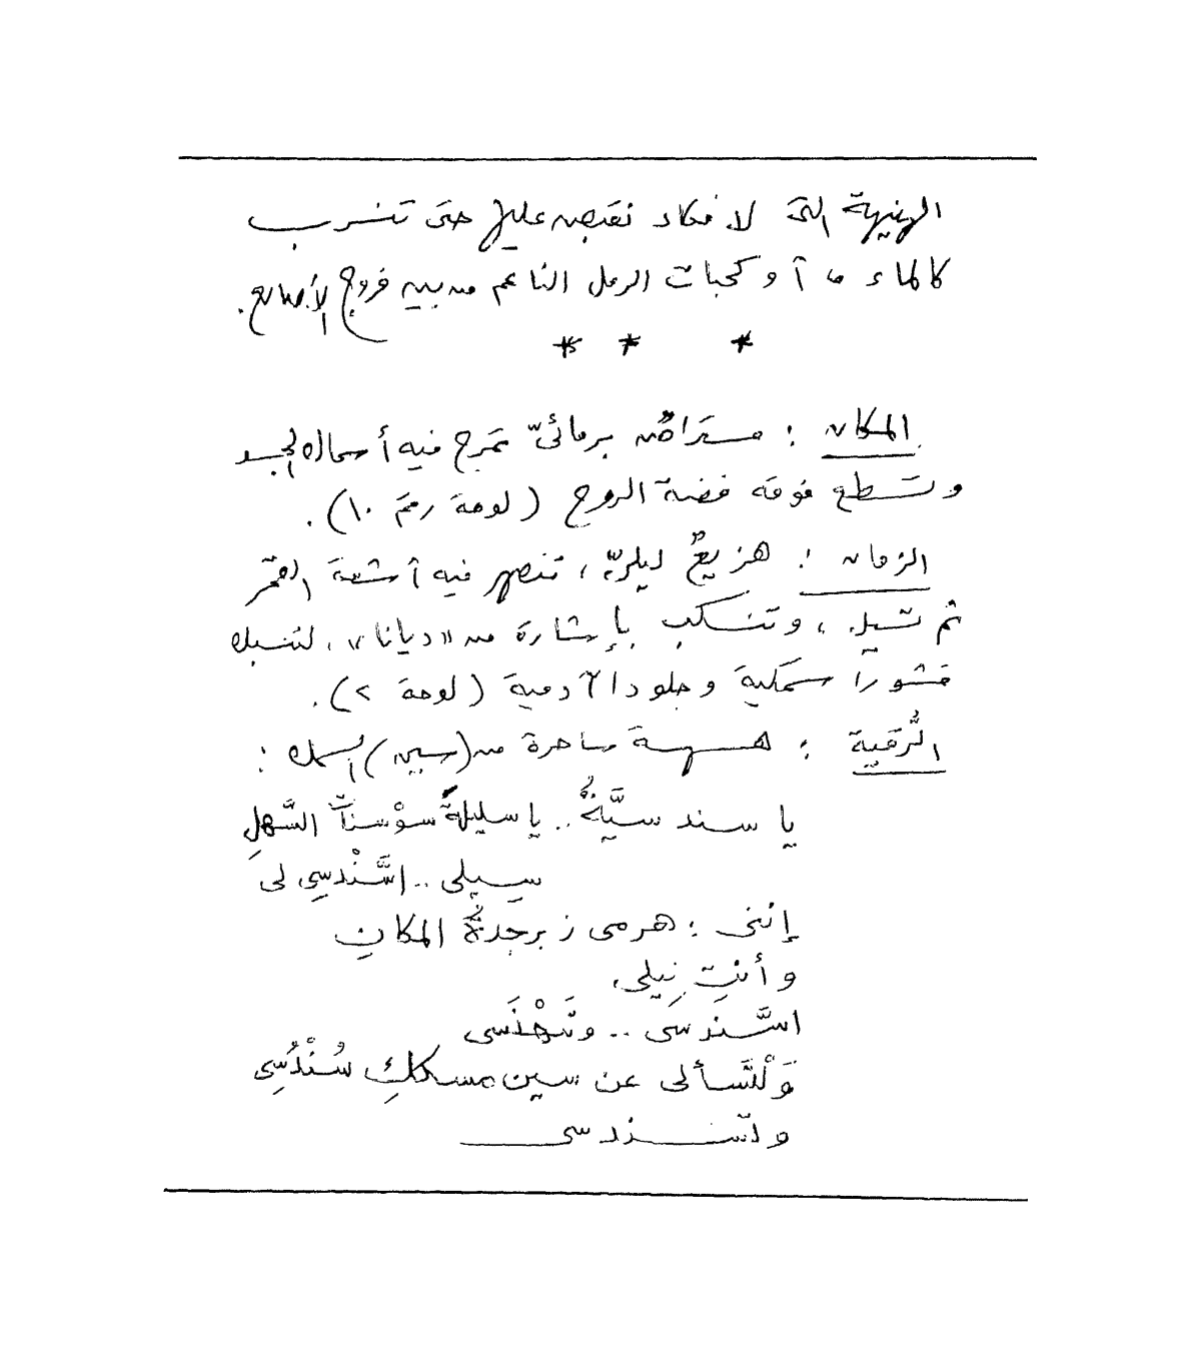 الهنيهة التى لا نكاد نقبض عليها حتى تتسرب
كالماء، أو كحبات الرمل الناعم من بين فروج الأصابع.
* * *
المكان : مستراضٌ برمائىّ تمرح فيه أسماك الجسد
وتسطع فوقه فضة الروح (لوحة رقم ١٠).
الزمان : هزيعٌ ليلىّ، تنصهر فيه أشعة القمر
ثم تسيل، وتنسكب بإشارة من «ديانا»، لتسبك
قشورا سمكية وجلودا آدمية (لوحة ٢).
الرُّقية : هسهسة ساحرة من (سين) السمك :
يا سندسيَّةُ .. يا سليلة سوْسنات السَّهلِ
سيلى .. اسَّنْدسِى لى
إننى : هرمى زبرجدةُ المكانِ
وأنتِ نِيلى،
اسَّندسَى .. وتَهْندَسى
وَلْتسألى عن سين مسككِ سُنْدُسِى
وتسندسى